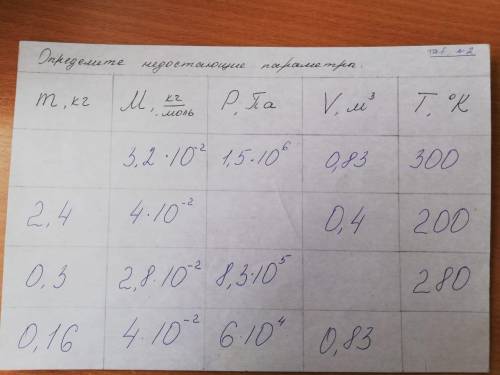 таб. №2
Определите недостающие параметры.
m, кг M, кг/моль P, Па V, м³ T, °K
3,2·10⁻² 1,5·10⁶ 0,83 300
2,4 4·10⁻² 0,4 200
0,3 2,8·10⁻² 8,3·10⁵ 280
0,16 4·10⁻² 6·10⁴ 0,83